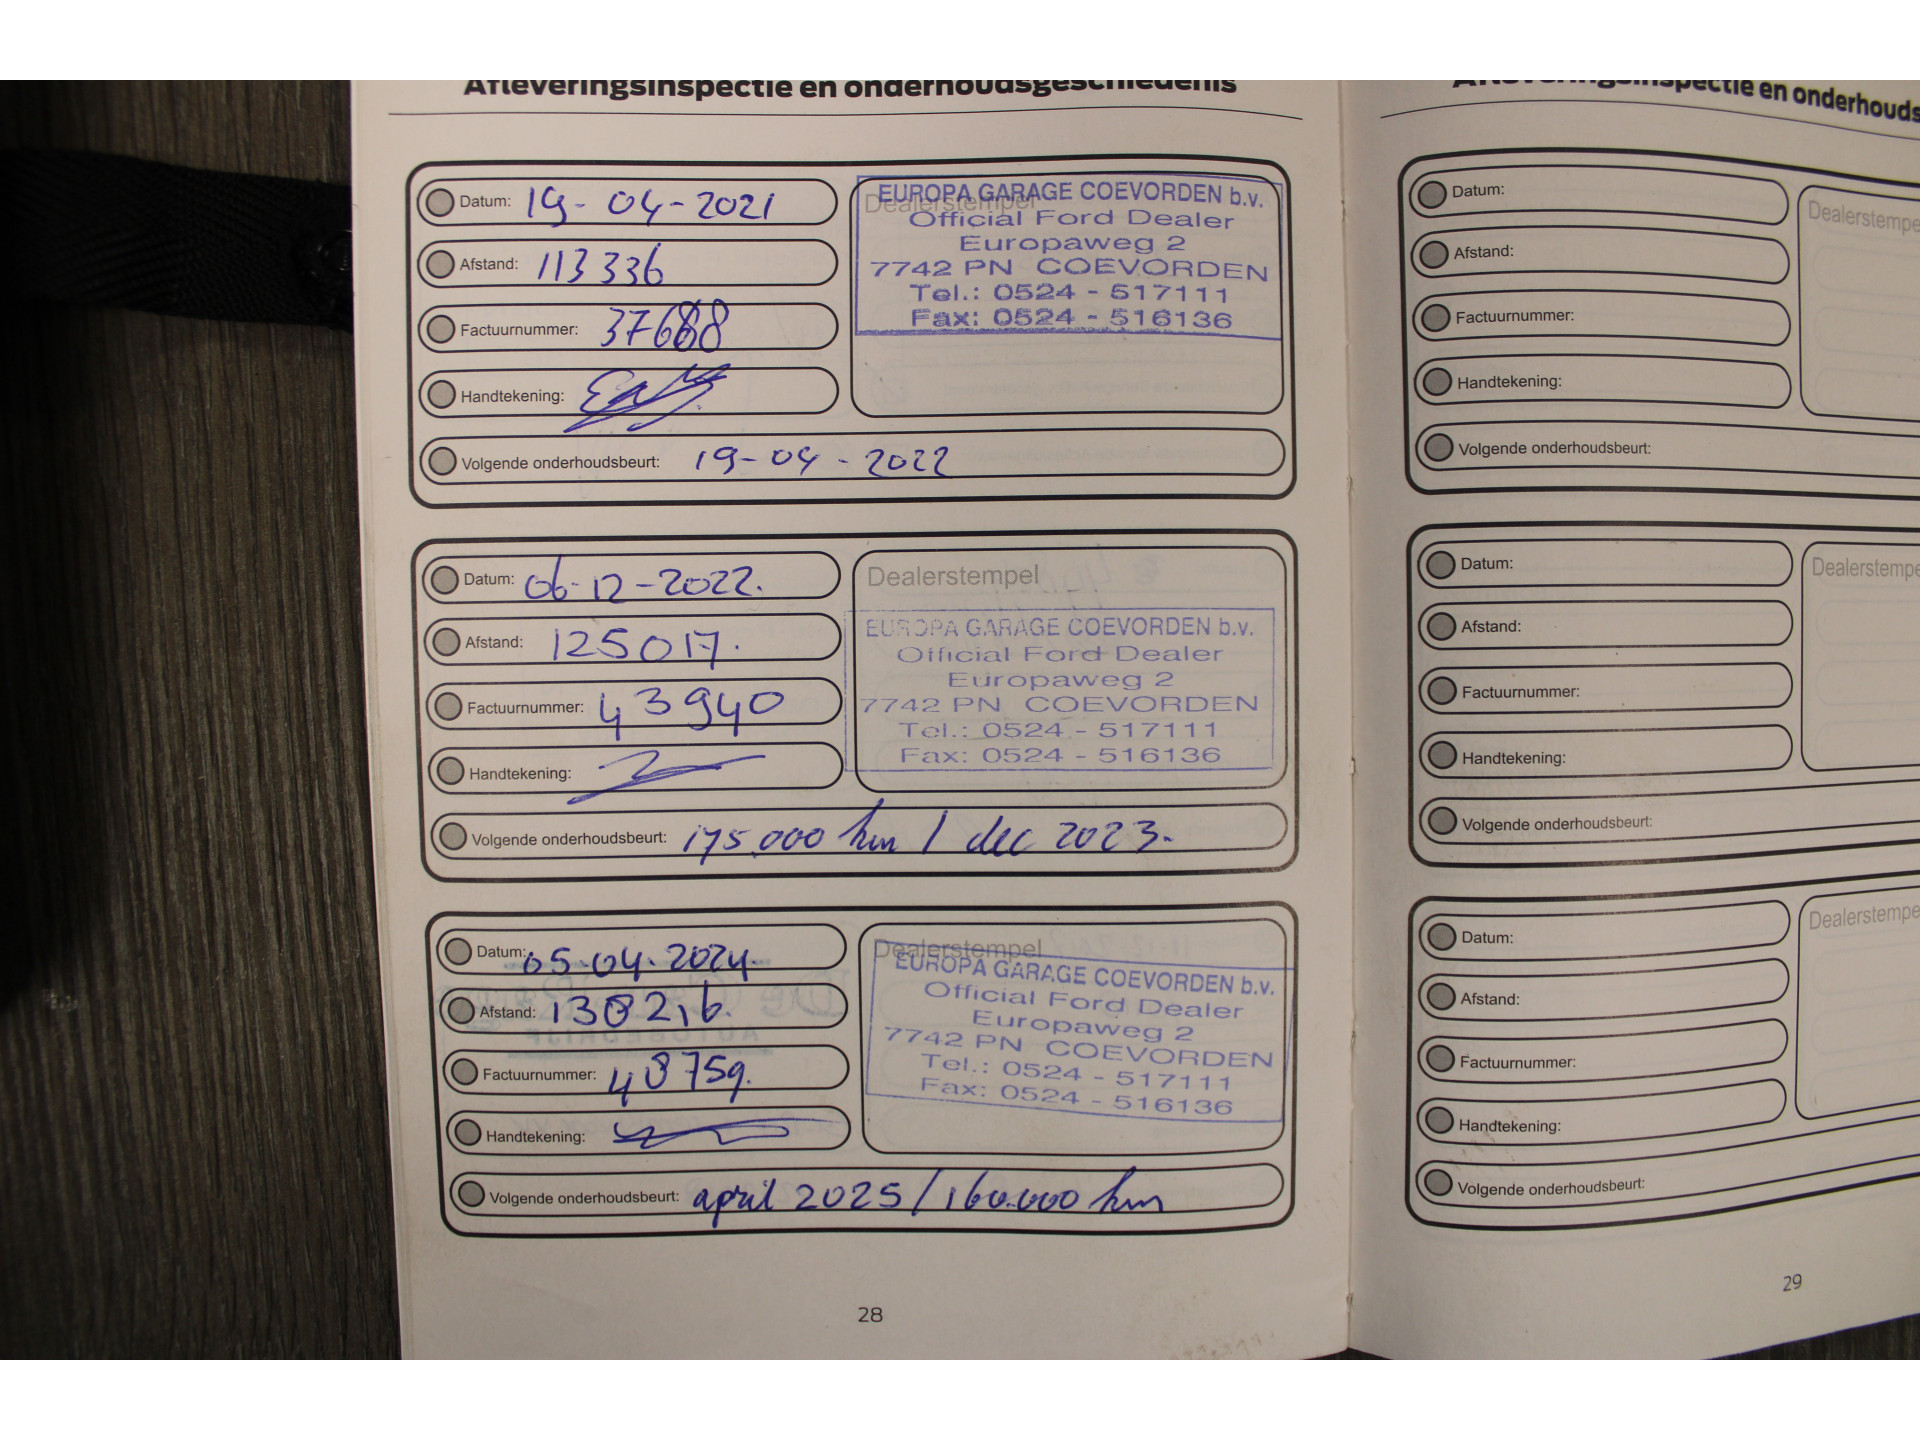 Afleveringsinspectie en onderhoudsgeschiedenis
Datum: 19-04-2021
Afstand: 113336
Factuurnummer: 37688
Handtekening:
Volgende onderhoudsbeurt: 19-04-2022
Dealerstempel
EUROPA GARAGE COEVORDEN b.v.
Official Ford Dealer
Europaweg 2
7742 PN COEVORDEN
Tel.: 0524 - 517111
Fax: 0524 - 516136
Datum: 06-12-2022.
Afstand: 125017.
Factuurnummer: 43940
Handtekening:
Volgende onderhoudsbeurt: 175.000 km / dec 2023.
Dealerstempel
EUROPA GARAGE COEVORDEN b.v.
Official Ford Dealer
Europaweg 2
7742 PN COEVORDEN
Tel.: 0524 - 517111
Fax: 0524 - 516136
Datum: 05-04-2024.
Afstand: 130216.
Factuurnummer: 48759.
Handtekening:
Volgende onderhoudsbeurt: april 2025 / 160.000 km
Dealerstempel
EUROPA GARAGE COEVORDEN b.v.
Official Ford Dealer
Europaweg 2
7742 PN COEVORDEN
Tel.: 0524 - 517111
Fax: 0524 - 516136
28
Afleveringsinspectie en onderhouds
Datum:
Afstand:
Factuurnummer:
Handtekening:
Volgende onderhoudsbeurt:
Dealerstempe
Datum:
Afstand:
Factuurnummer:
Handtekening:
Volgende onderhoudsbeurt:
Dealerstempe
Datum:
Afstand:
Factuurnummer:
Handtekening:
Volgende onderhoudsbeurt:
Dealerstempe
29